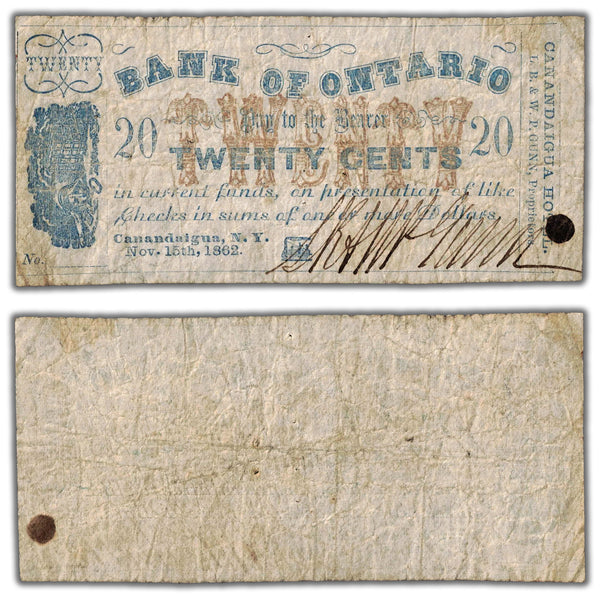 TWENTY
BANK OF ONTARIO
20 Pay to the Bearer 20
TWENTY
TWENTY CENTS
in current funds, on presentation of like
Checks in sums of one or more Dollars,
Canandaigua, N. Y.
Nov. 15th, 1862.
No.
CANANDAIGUA HOTEL,
J. B. & W. P. GUNN, Proprietors